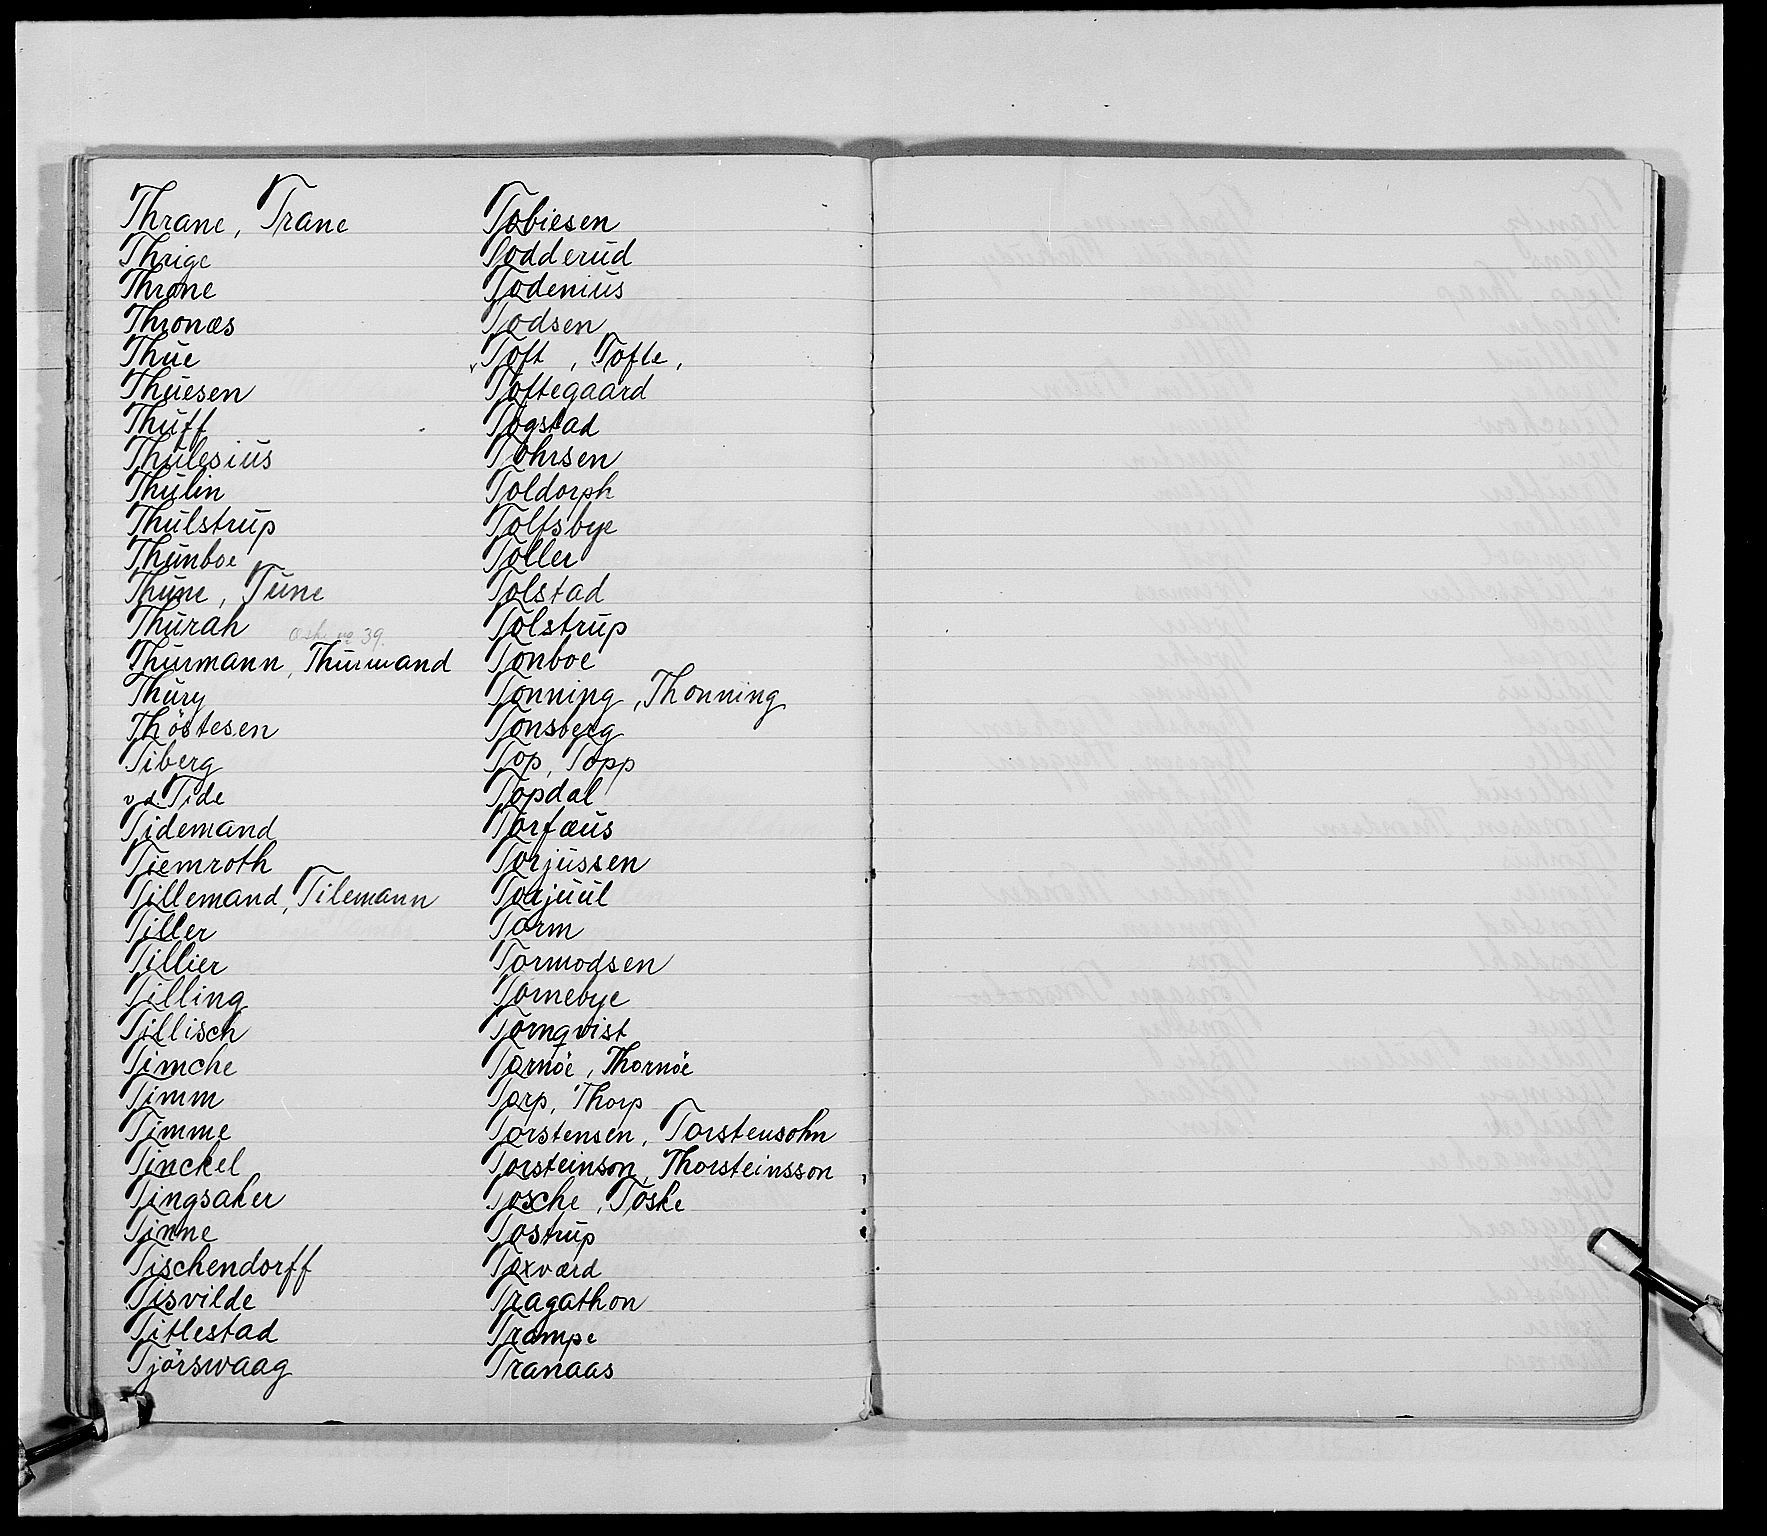 Thrane, Trane
Thrige
Throne
Thronæs
Thue
Thuesen
Thuff
Thulesius
Thulin
Thulstrup
Thunboe
Thune, Tune
Thurah
Thurmann, Thurmand
Thury
Thöstesen
Tiberg
v.d. Tide
Tidemand
Tiemroth
Tillemand, Tilemann
Tiller
Tillier
Tilling
Tillisch
Timche
Timm
Timme
Tinckel
Tingsaker
Tinne
Tischendorff
Tisvilde
Titlestad
Tjörswaag
Tobiesen
Todderud
Todenius
Todsen
Toft, Tofte,
Toftegaard
Togstad
Tohrsen
Toldorph
Toltsbye
Toller
Tolstad
Tolstrup
Tonboe
Tonning, Thonning
Tonsberg
Top, Topp
Topdal
Torfæus
Torjussen
Torjuul
Torm
Tormodsen
Tornebye
Tornqvist
Tornöe, Thornöe
Torp, Thorp
Torstensen, Torstensohn
Torsteinson, Thorsteinsson
Tosche, Toske
Tostrup
Toxværd
Tragathon
Trampe
Tranaas